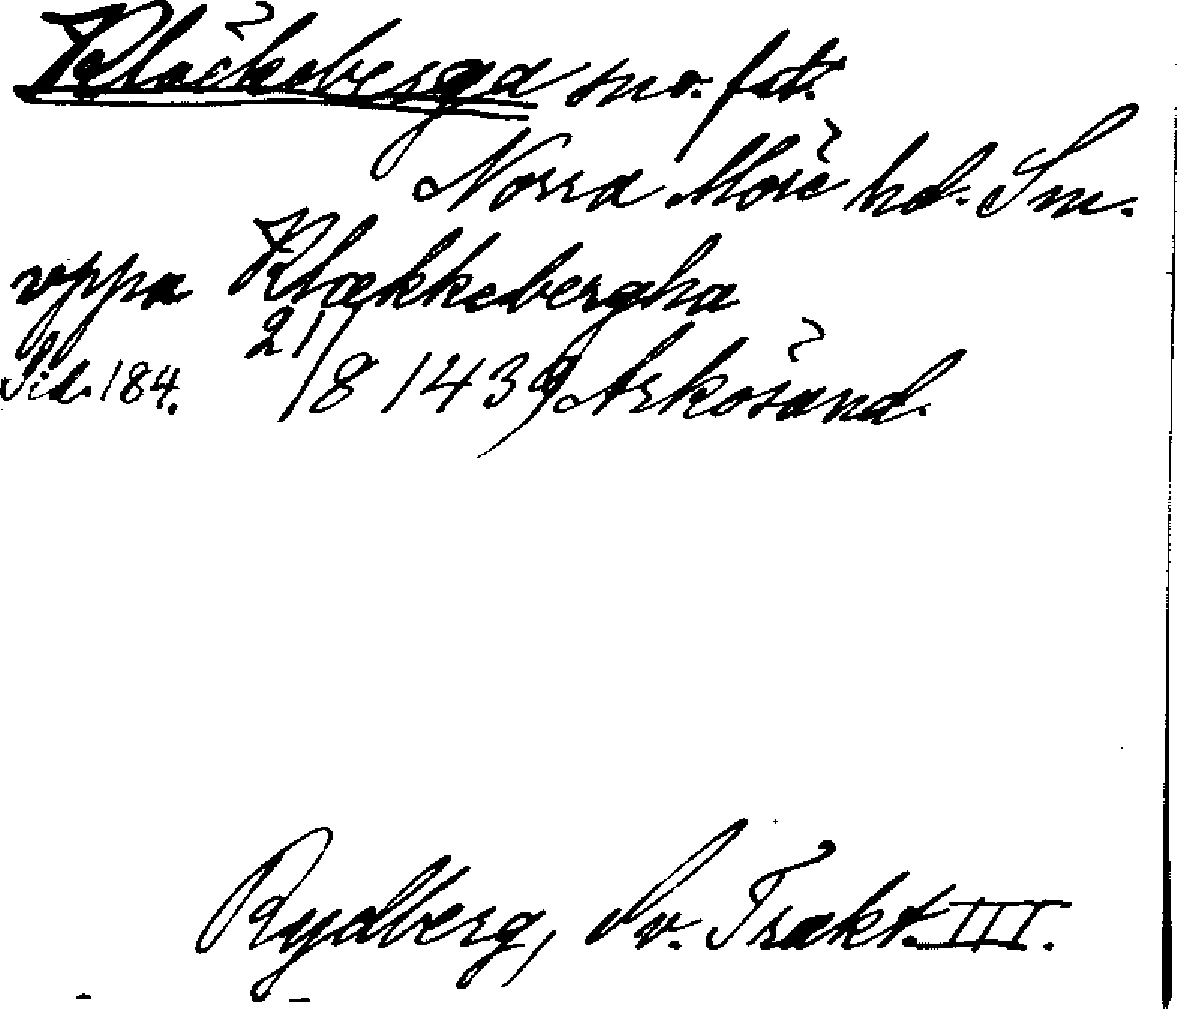 Klöckeberga sno. fdt.
Norra Möre hd. Sm.
vppa Klækkebergha
Sid. 184. 21/8 1439 Arkösund.
Rydberg, Sv. Trakt. III.